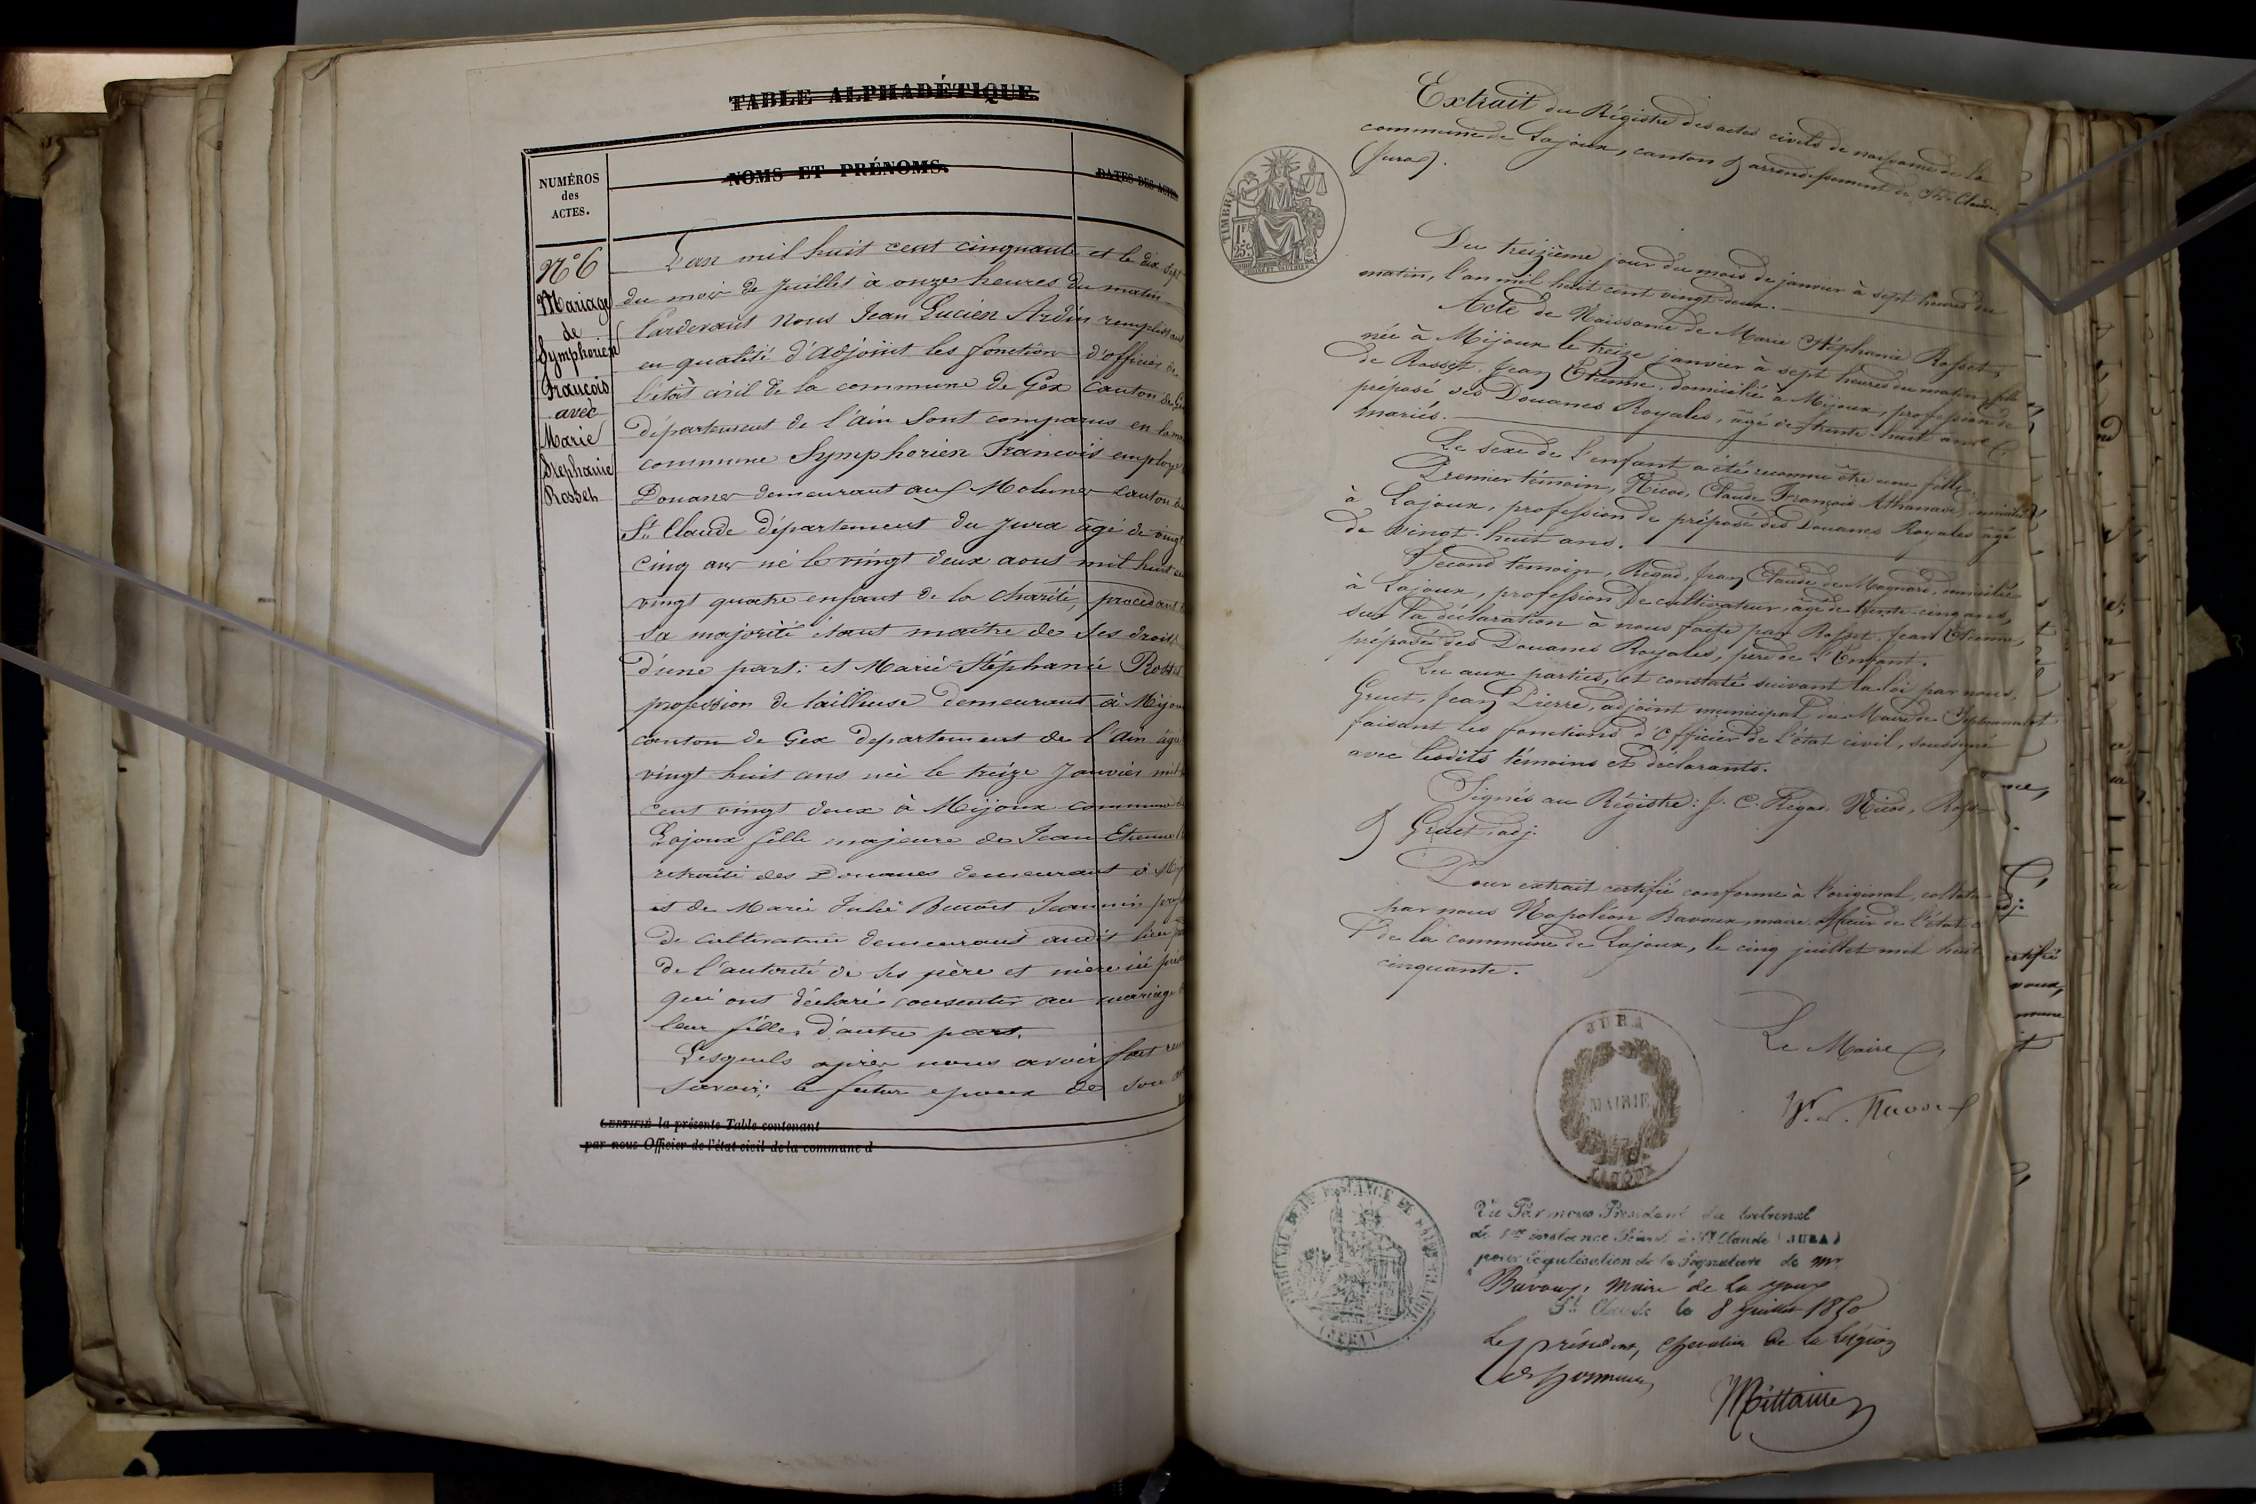 TABLE ALPHABÉTIQUE.
NUMÉROS
des
ACTES.
NOMS ET PRÉNOMS.
DATES DES ACTES
N° 6
Mariage
de
Symphorien
François
avec
Marie
Stephanie
Rosset
L'an mil huit cent cinquante et le dix sept
du mois de Juillet à onze heures du matin
Pardevant nous Jean Lucien Ardin remplissant
en qualité d'adjoint les fonctions d'officier de
l'état civil de la commune de Gex canton de Gex
département de l'ain Sont comparus en la
commune Symphorien François employé
Douanes demeurant aux Molunes canton de
St Claude département du Jura âgé de vingt
cinq ans né le vingt deux aout mil huit cent
vingt quatre enfant de la charité, procédant
sa majorité étant maitre de ses droits
d'une part; et Marie Stéphanie Rosset
profession de tailleuse demeurant à Mijoux
canton de Gex departement de l'Ain âgée
vingt huit ans née le treize Janvier mil
cent vingt deux à Mijoux commune
Lajoux fille majeure de Jean Etienne
retraité des Douanes demeurant à Mij
et de Marie Julie Benoit Jeannin prof
de cultivatrice demeurant audit lieu
de l'autorité de ses père et mère ici
qui ont déclaré consentir au mariage
leur fille, d'autre part.
Lesquels après nous avoir fait
savoir; le futur epoux de son
CERTIFIÉ la présente Table contenant
par nous Officier de l'état civil de la commune d
Extrait du Régistre des actes civils de naissance de la
commune de Lajoux, canton & arrondissement de St. Claude,
(Jura).
TIMBRE
1F
25c
Du treizième jour du mois de janvier à sept heures du
matin, l'an mil huit cent vingt-deux.
Acte de Naissance de Marie Stéphanie Rosset,
née à Mijoux le treize janvier à sept heures du matin, fille
de Rosset, Jean Etienne, domicilié à Mijoux, profession de
préposé des Douanes Royales, âgé de trente-huit ans &
mariés.
Le sexe de l'enfant a été reconnu être une fille.
Premier témoin, Nicod, Claude François Athanase, domicilié
à Lajoux, profession de préposé des Douanes Royales âgé
de vingt-huit ans.
Second témoin, Regad, Jean Claude de Magnard, domicilié
à Lajoux, profession de cultivateur, âgé de trente-cinq ans,
sur la déclaration à nous faite par Rosset, Jean Etienne,
préposé des Douanes Royales, père de l'Enfant.
Lu aux parties, et constaté suivant la loi par nous,
Gruet, Jean Pierre, adjoint municipal du Maire de Septmoncel
faisant les fonctions d'Officier de l'état civil, soussigné
avec lesdits témoins et declarants.
Signés au Régistre: J. C. Regad. Nicod, Rosset
& Gruet, adj.
Pour extrait certifié conforme à l'original, collationné
par nous Napoléon Bavoux, maire officier de l'état
de la commune de Lajoux, le cinq juillet mil huit
cinquante.
Le Maire
JURA
MAIRIE
LAJOUX
Vu Par nous Président du tribunal
de 1ere instance Séant à St Claude (JURA)
pour légalisation de la Signature de mr
Bavoux, maire de la joux
St Claude le 8 Juillet 1850
Le président, chevalier de la Légion
d'honneur,
(JURA)